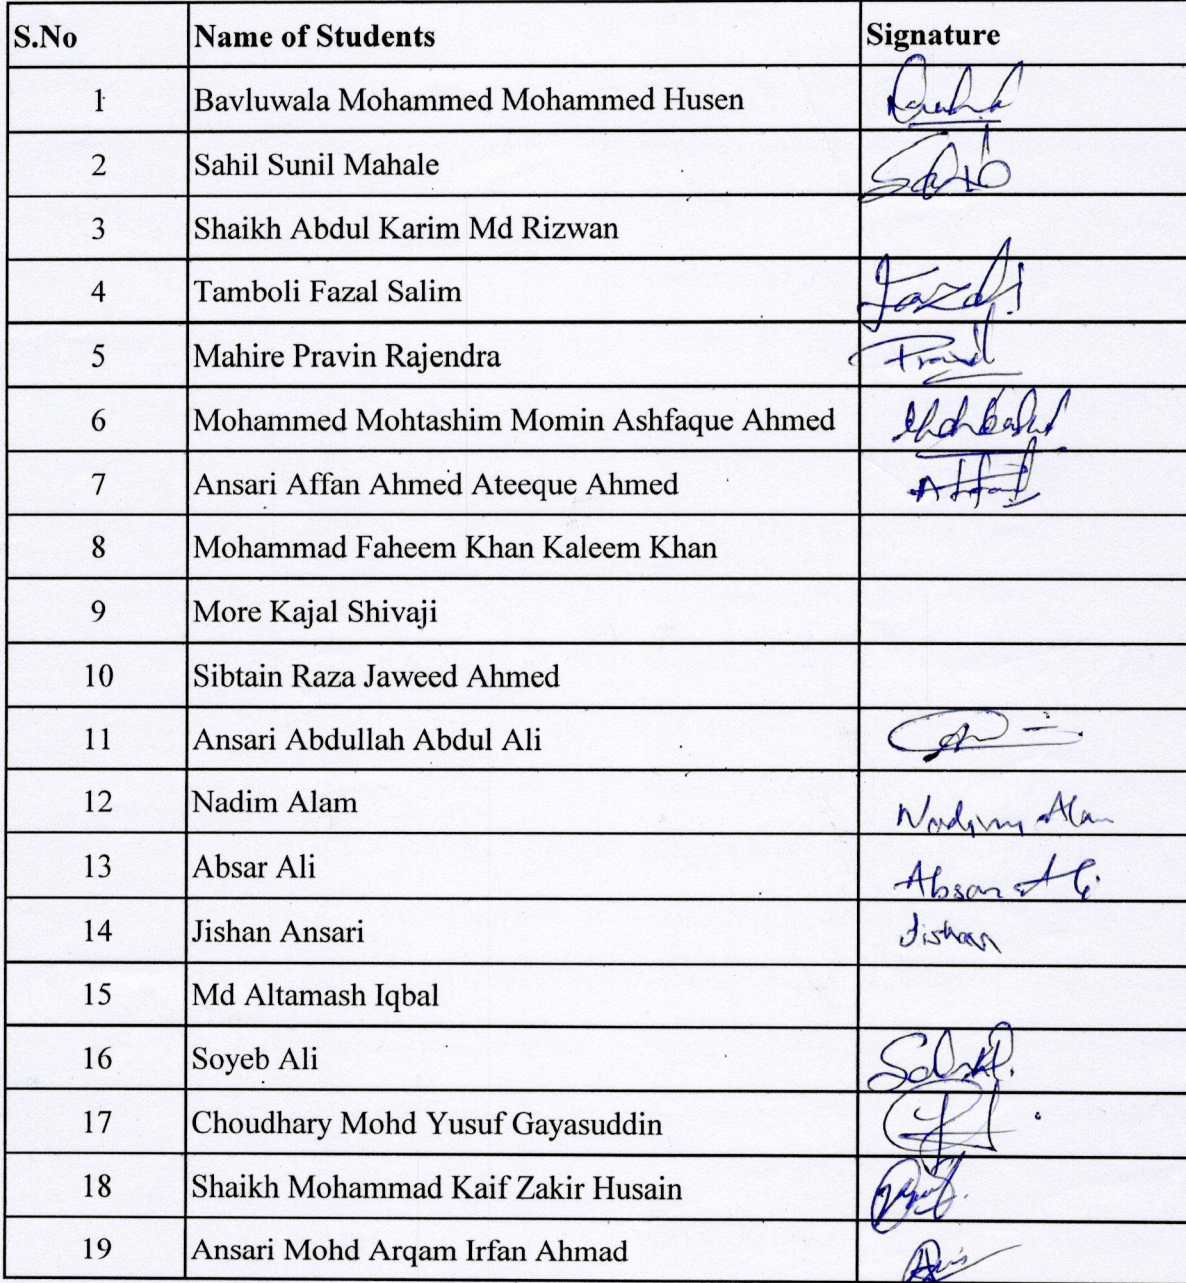 S.No Name of Students Signature
1 Bavluwala Mohammed Mohammed Husen
2 Sahil Sunil Mahale
3 Shaikh Abdul Karim Md Rizwan
4 Tamboli Fazal Salim Fazal
5 Mahire Pravin Rajendra
6 Mohammed Mohtashim Momin Ashfaque Ahmed
7 Ansari Affan Ahmed Ateeque Ahmed
8 Mohammad Faheem Khan Kaleem Khan
9 More Kajal Shivaji
10 Sibtain Raza Jaweed Ahmed
11 Ansari Abdullah Abdul Ali
12 Nadim Alam Nadim Alam
13 Absar Ali Absar Ali
14 Jishan Ansari Jishan
15 Md Altamash Iqbal
16 Soyeb Ali
17 Choudhary Mohd Yusuf Gayasuddin
18 Shaikh Mohammad Kaif Zakir Husain
19 Ansari Mohd Arqam Irfan Ahmad